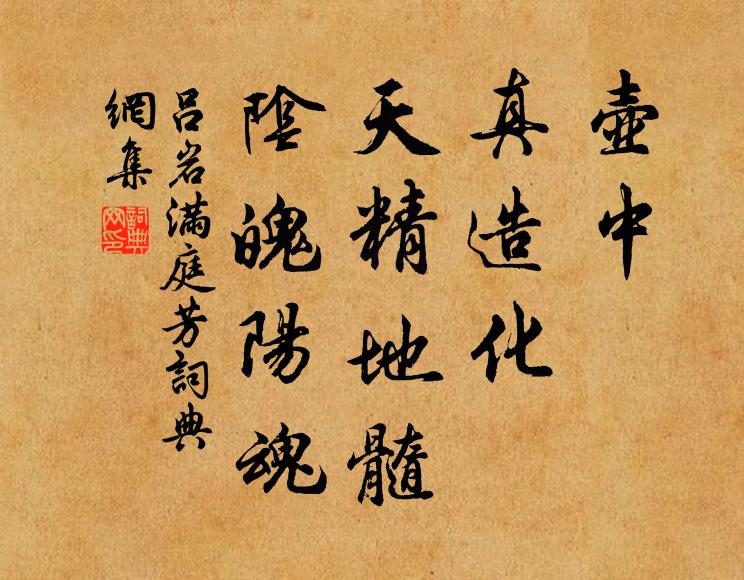 壺中
真造化
天精地髓
陰魄陽魂
呂岩滿庭芳詞典
網集
詞典
网印